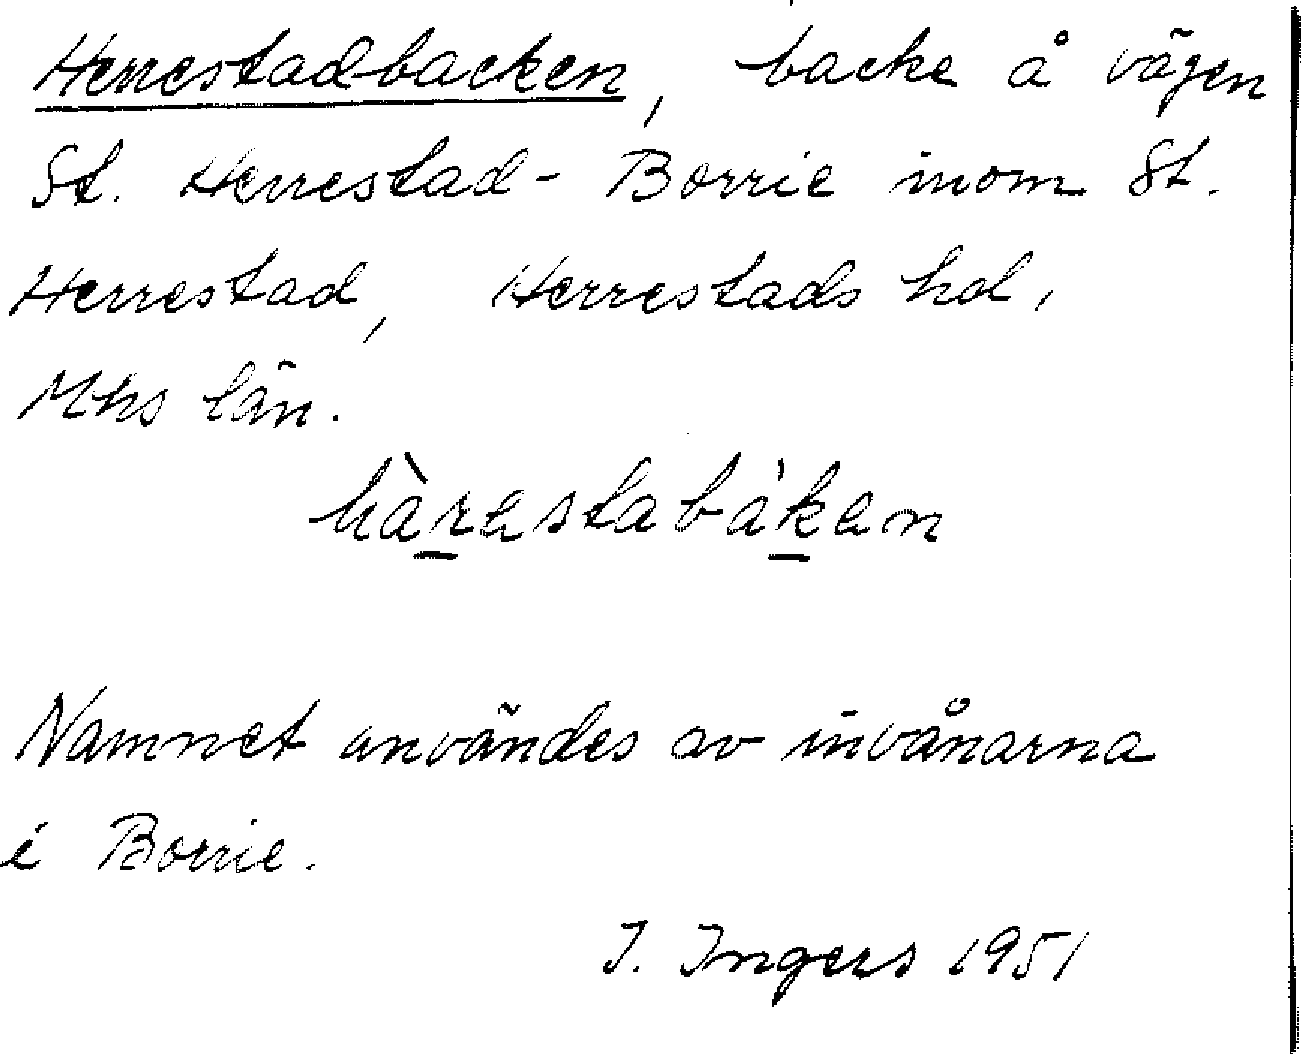 Herrestadbacken, backe å vägen
St. Herrestad - Borrie inom St.
Herrestad, Herrestads hd,
Mhs län.
hàrestabáken
Namnet användes av invånarna
i Borrie.
I. Ingers 1951